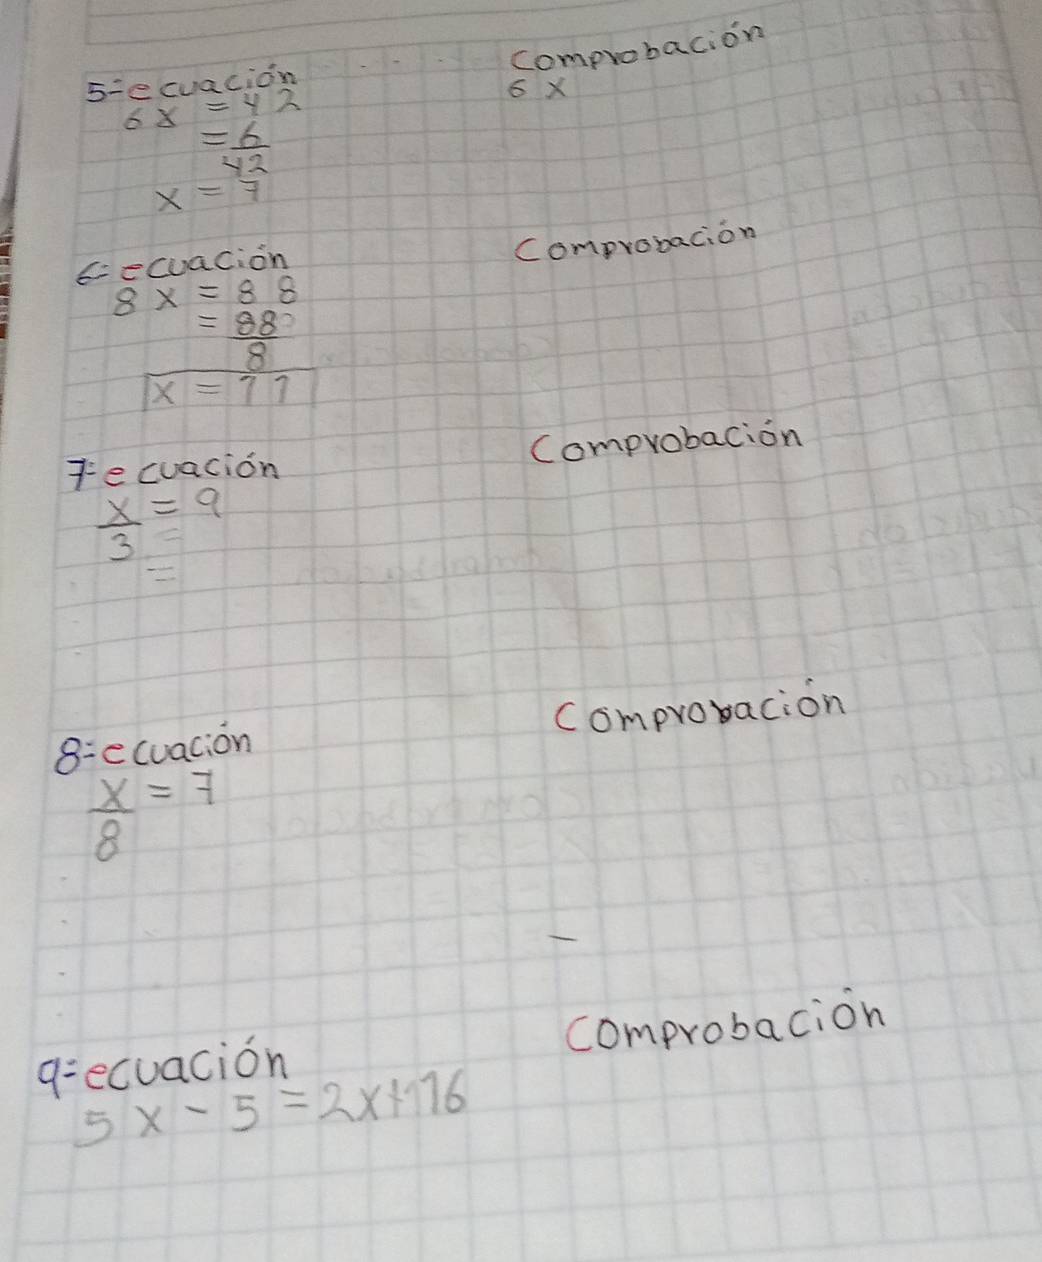 5= ecuación
Comprobación
6x = 42
6x
= 6/42
x = 7
6= ecuación
Comprobación
8x = 88
= 88/8
x = 11
7= ecuación
Comprobación
x/3 = 9
=
=
8= ecuación
Comprovación
x/8 = 7
9= ecuación
Comprobación
5x - 5 = 2x + 16